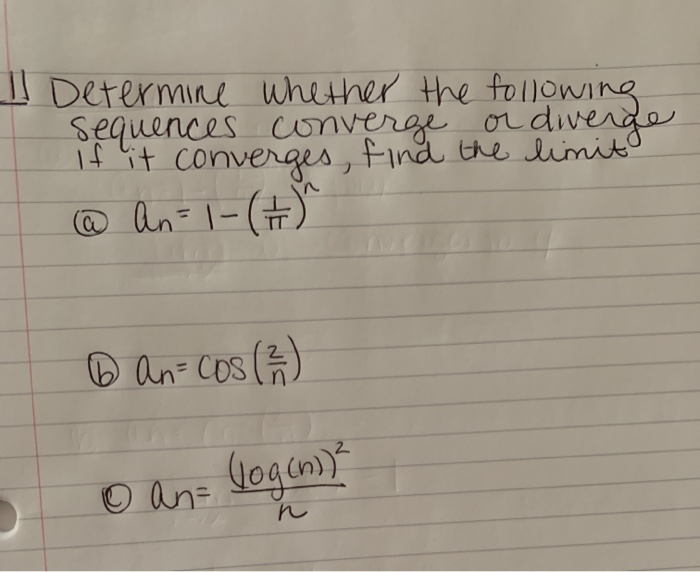 1) Determine whether the following
sequences converge or diverge
If it converges, find the limit
(a) an = 1 - (1/π)^n
(b) an = cos(2/n)
(c) an = (log(n))^2 / n